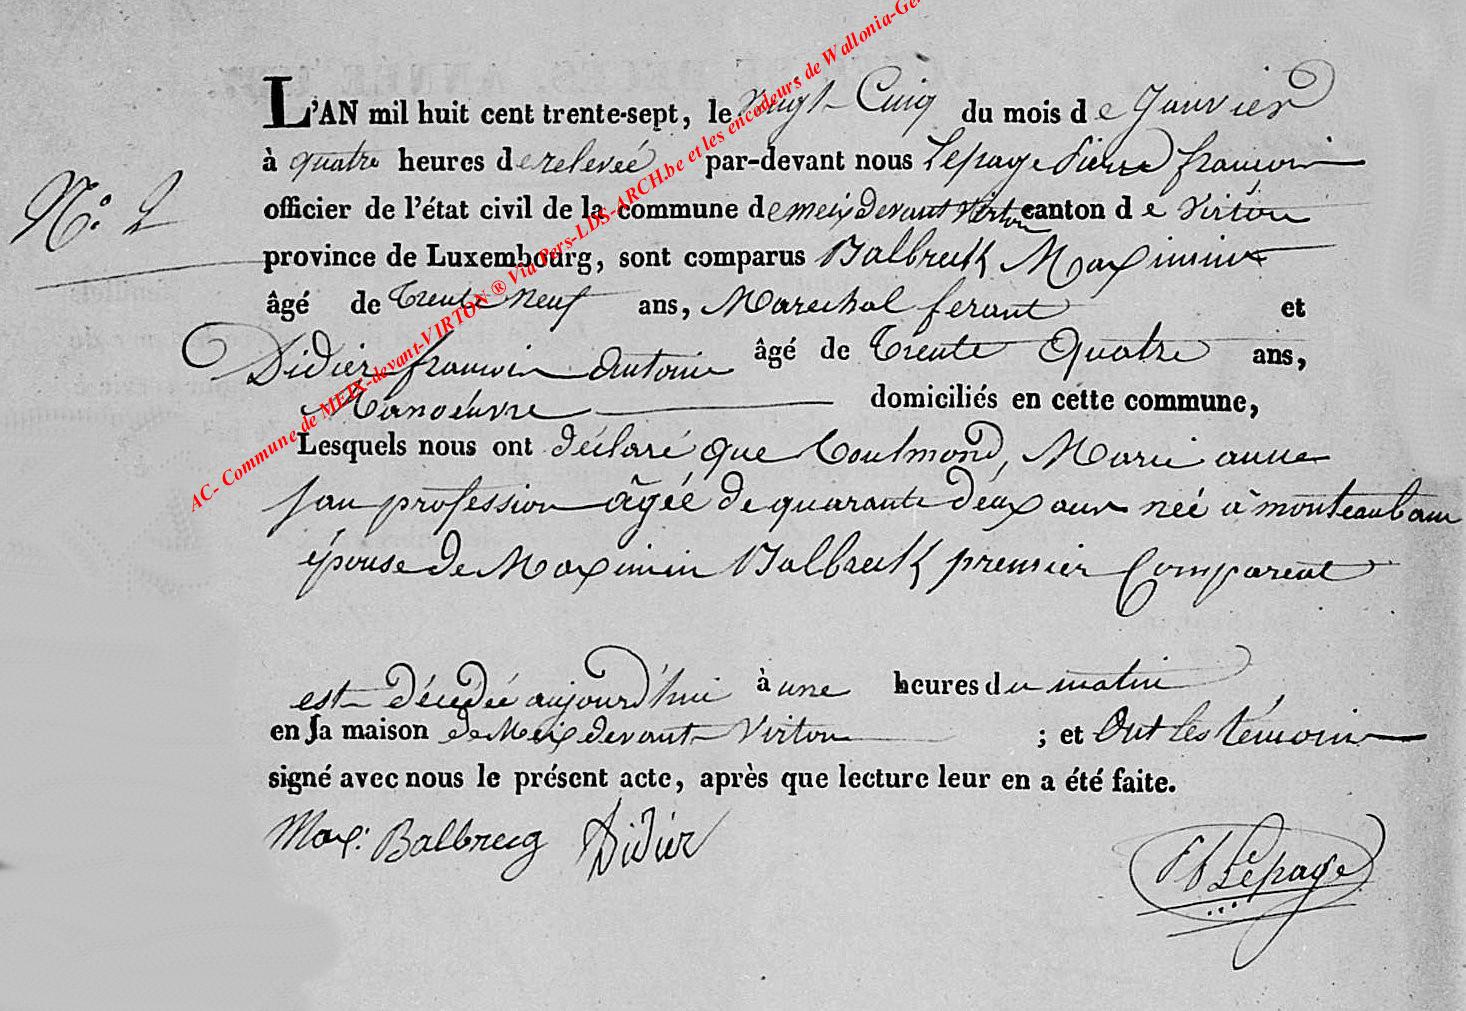 AC- Commune de MEIX-devant-VIRTON ® Via Pers-LDS-ARCH.be et les encodeurs de Wallonia-Ge
L'AN mil huit cent trente-sept, le Vingt Cinq du mois de Janvier
à quatre heures de relevée par-devant nous Lepage Pierre francois
N.° 2
officier de l'état civil de la commune de meix devant Virton canton de Virton
province de Luxembourg, sont comparus Balbreck Maximin
âgé de Trente neuf ans, Marechal ferant et
Didier francoin Antoine âgé de Trente Quatre ans,
Manoeuvre domiciliés en cette commune,
Lesquels nous ont déclaré que Coulmond, Marie anne
san profession âgée de quarante deux ans née à monteauban
épouse de Maximin Balbreck premier Comparent
est décédée aujourd'hui à une heures du matin
en sa maison de Meix devant Virton ; et Ont les témoin
signé avec nous le présent acte, après que lecture leur en a été faite.
Max: Balbrecq Didier Lepage